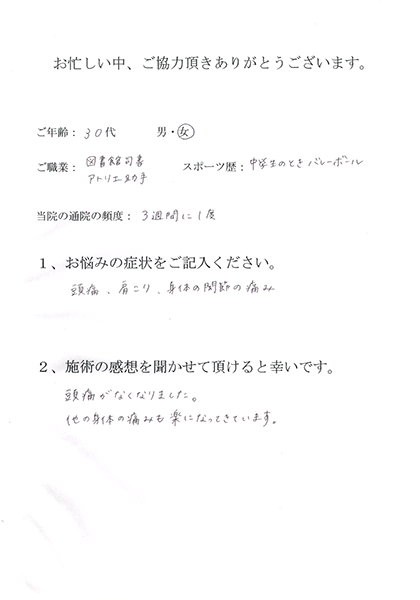 お忙しい中、ご協力頂きありがとうございます。
ご年齢： 30代 男・女
ご職業： 図書館司書 スポーツ歴： 中学生のとき バレーボール
アトリエ助手
当院の通院の頻度： 3週間に1度
１、お悩みの症状をご記入ください。
頭痛、肩こり、身体の関節の痛み
２、施術の感想を聞かせて頂けると幸いです。
頭痛がなくなりました。
他の身体の痛みも楽になってきています。